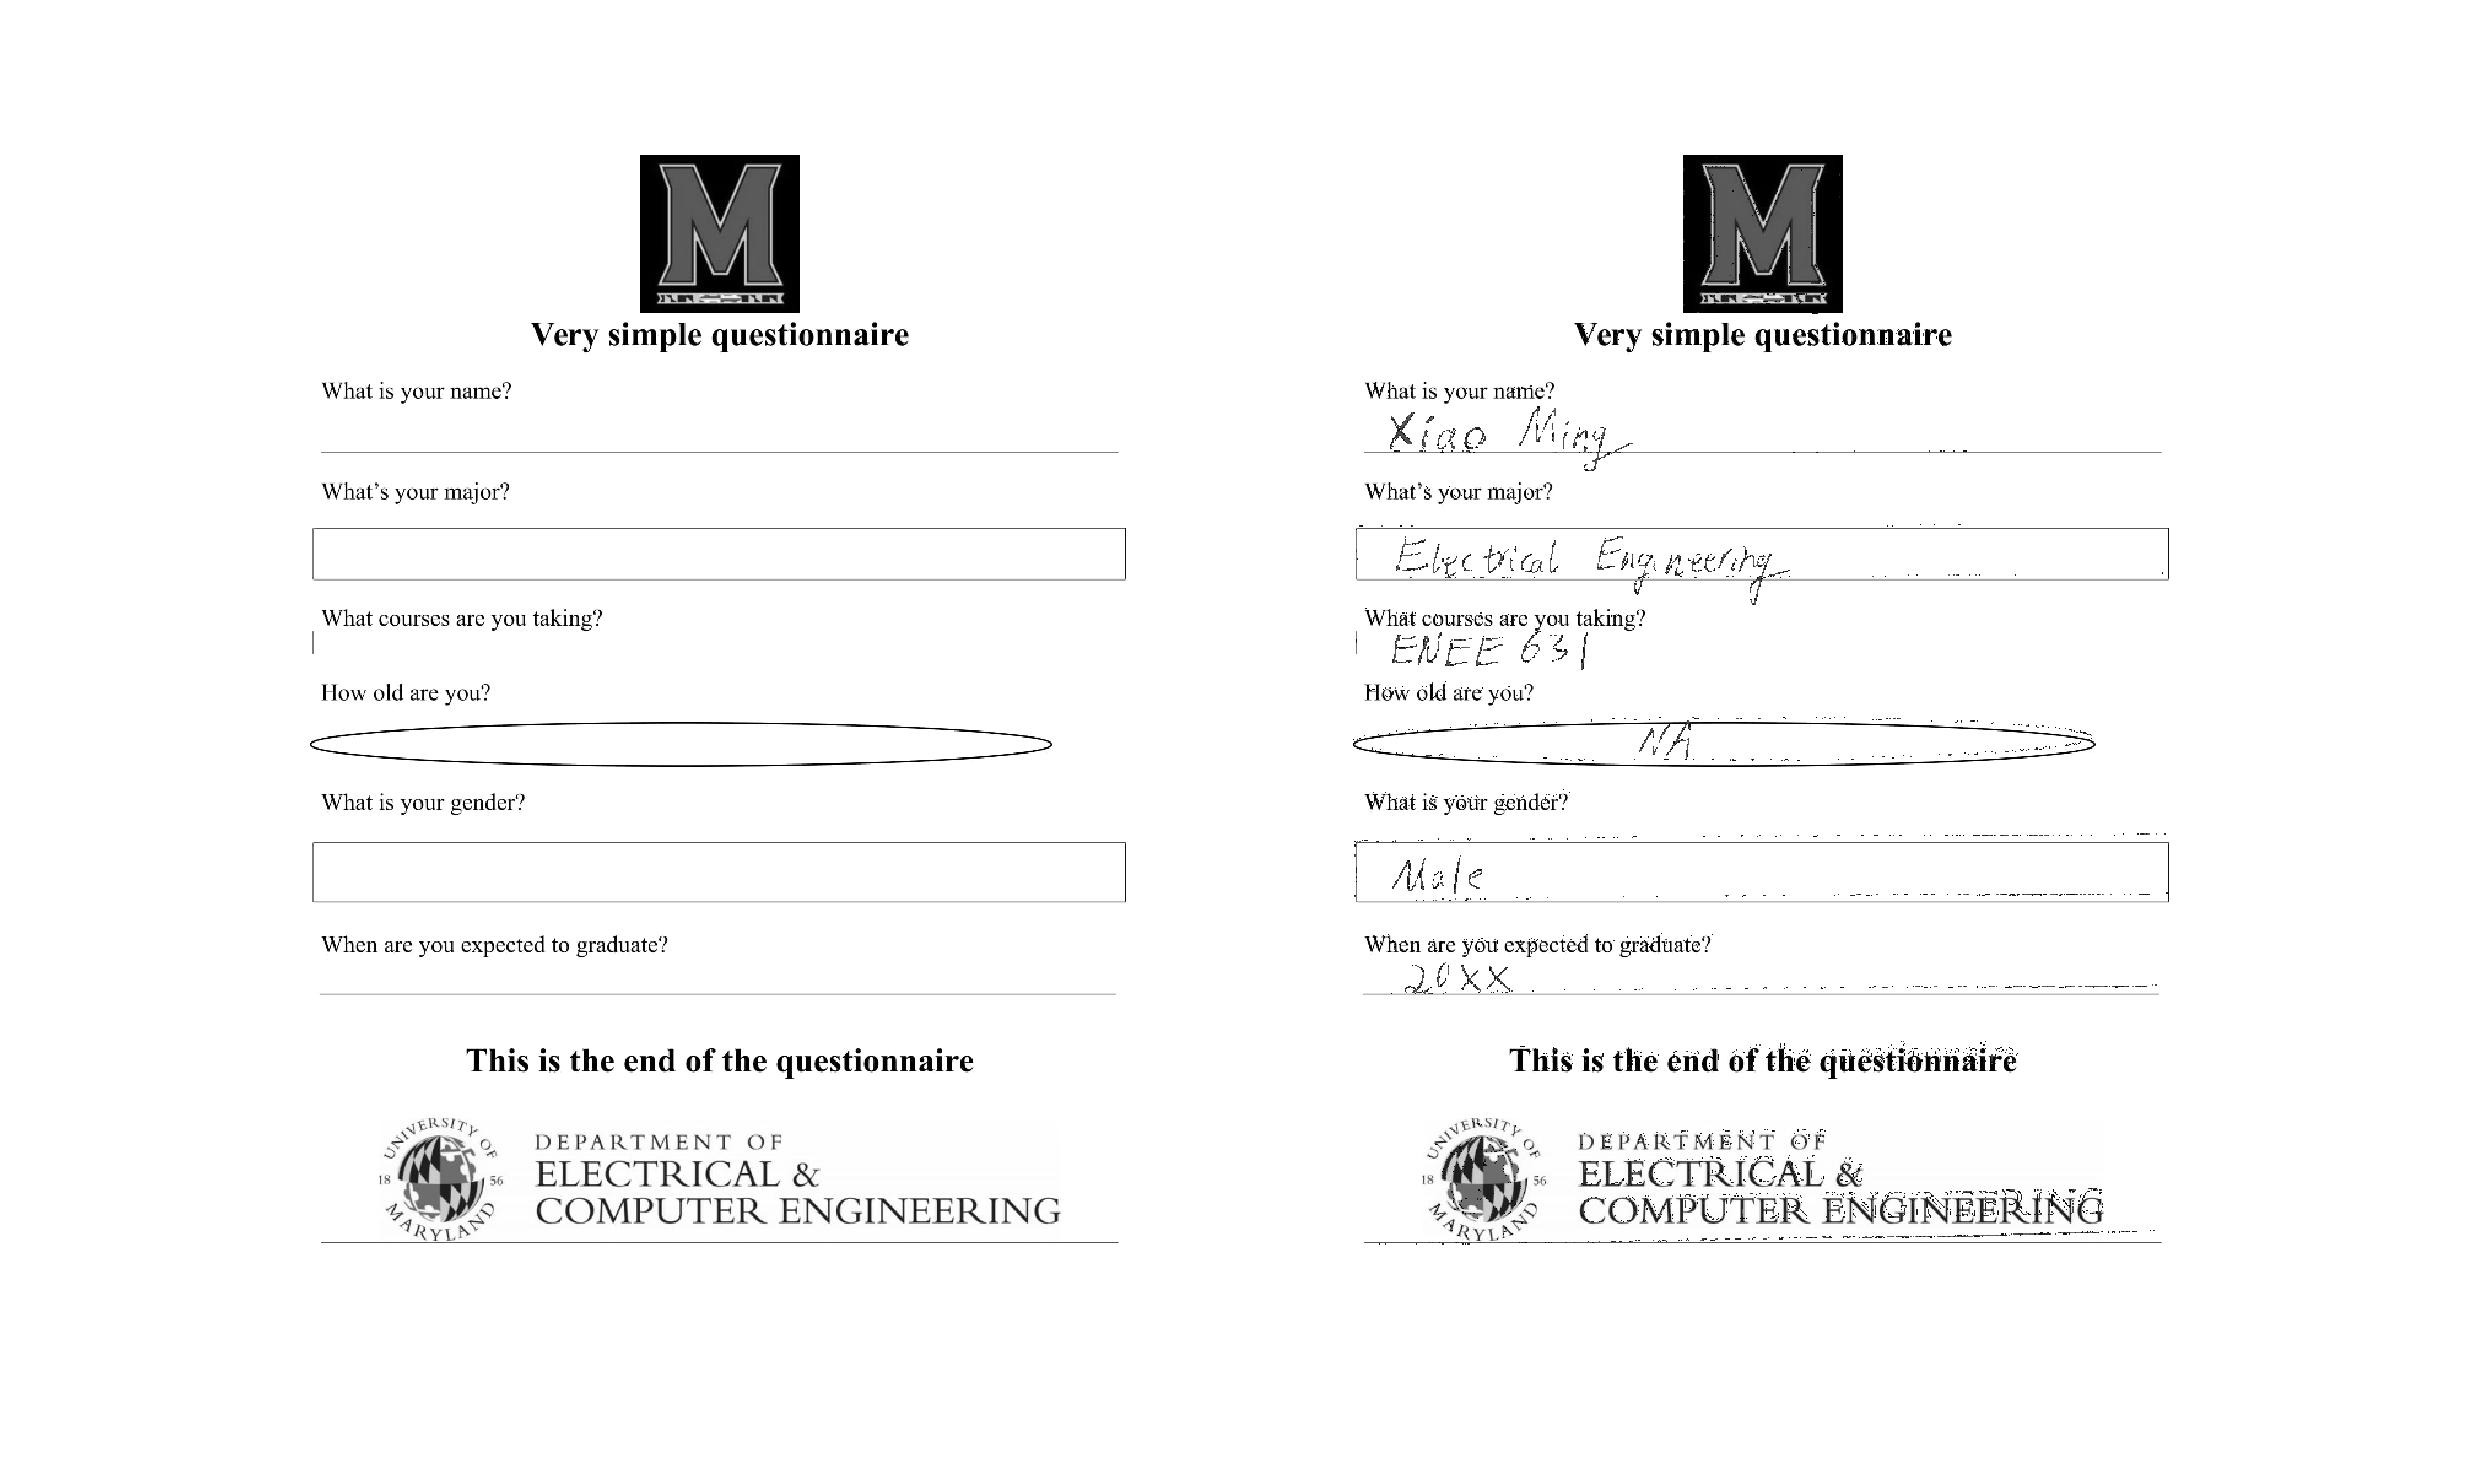 M
Very simple questionnaire
What is your name?
What's your major?
What courses are you taking?
How old are you?
What is your gender?
When are you expected to graduate?
This is the end of the questionnaire
UNIVERSITY OF
18 56
MARYLAND
DEPARTMENT OF
ELECTRICAL &
COMPUTER ENGINEERING
M
Very simple questionnaire
What is your name?
Xiao Ming
What's your major?
Electrical Engineering
What courses are you taking?
ENEE 631
How old are you?
NA
What is your gender?
Male
When are you expected to graduate?
20XX
This is the end of the questionnaire
UNIVERSITY OF
18 56
MARYLAND
DEPARTMENT OF
ELECTRICAL &
COMPUTER ENGINEERING